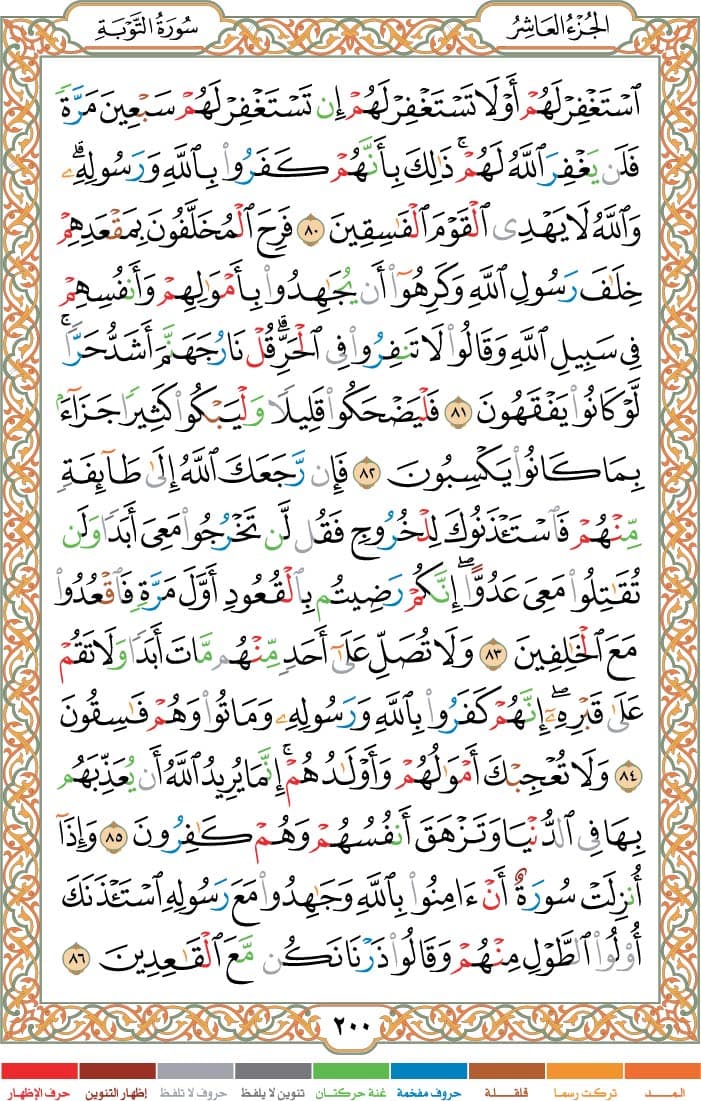 الجُزْءُ العَاشِرُ
سُورَةُ التَّوْبَةِ
ٱسْتَغْفِرْ لَهُمْ أَوْ لَا تَسْتَغْفِرْ لَهُمْ إِن تَسْتَغْفِرْ لَهُمْ سَبْعِينَ مَرَّةً
فَلَن يَغْفِرَ ٱللَّهُ لَهُمْ ۚ ذَٰلِكَ بِأَنَّهُمْ كَفَرُوا۟ بِٱللَّهِ وَرَسُولِهِۦ ۗ
وَٱللَّهُ لَا يَهْدِى ٱلْقَوْمَ ٱلْفَـٰسِقِينَ ٨٠ فَرِحَ ٱلْمُخَلَّفُونَ بِمَقْعَدِهِمْ
خِلَـٰفَ رَسُولِ ٱللَّهِ وَكَرِهُوٓا۟ أَن يُجَـٰهِدُوا۟ بِأَمْوَٰلِهِمْ وَأَنفُسِهِمْ
فِى سَبِيلِ ٱللَّهِ وَقَالُوا۟ لَا تَنفِرُوا۟ فِى ٱلْحَرِّ ۗ قُلْ نَارُ جَهَنَّمَ أَشَدُّ حَرًّا ۚ
لَّوْ كَانُوا۟ يَفْقَهُونَ ٨١ فَلْيَضْحَكُوا۟ قَلِيلًا وَلْيَبْكُوا۟ كَثِيرًا جَزَآءًۢ
بِمَا كَانُوا۟ يَكْسِبُونَ ٨٢ فَإِن رَّجَعَكَ ٱللَّهُ إِلَىٰ طَآئِفَةٍ
مِّنْهُمْ فَٱسْتَـْٔذَنُوكَ لِلْخُرُوجِ فَقُل لَّن تَخْرُجُوا۟ مَعِىَ أَبَدًا وَلَن
تُقَـٰتِلُوا۟ مَعِىَ عَدُوًّا ۖ إِنَّكُمْ رَضِيتُم بِٱلْقُعُودِ أَوَّلَ مَرَّةٍ فَٱقْعُدُوا۟
مَعَ ٱلْخَـٰلِفِينَ ٨٣ وَلَا تُصَلِّ عَلَىٰٓ أَحَدٍ مِّنْهُم مَّاتَ أَبَدًا وَلَا تَقُمْ
عَلَىٰ قَبْرِهِۦٓ ۖ إِنَّهُمْ كَفَرُوا۟ بِٱللَّهِ وَرَسُولِهِۦ وَمَاتُوا۟ وَهُمْ فَـٰسِقُونَ
٨٤ وَلَا تُعْجِبْكَ أَمْوَٰلُهُمْ وَأَوْلَـٰدُهُمْ ۚ إِنَّمَا يُرِيدُ ٱللَّهُ أَن يُعَذِّبَهُم
بِهَا فِى ٱلدُّنْيَا وَتَزْهَقَ أَنفُسُهُمْ وَهُمْ كَـٰفِرُونَ ٨٥ وَإِذَآ
أُنزِلَتْ سُورَةٌ أَنْ ءَامِنُوا۟ بِٱللَّهِ وَجَـٰهِدُوا۟ مَعَ رَسُولِهِ ٱسْتَـْٔذَنَكَ
أُو۟لُوا۟ ٱلطَّوْلِ مِنْهُمْ وَقَالُوا۟ ذَرْنَا نَكُن مَّعَ ٱلْقَـٰعِدِينَ ٨٦
٢٠٠
المـــد تركت رسما قلقـــلة حروف مفخمة غنة حركتان تنوين لا يلفظ حروف لا تلفظ إظهار التنوين حرف الإظهار